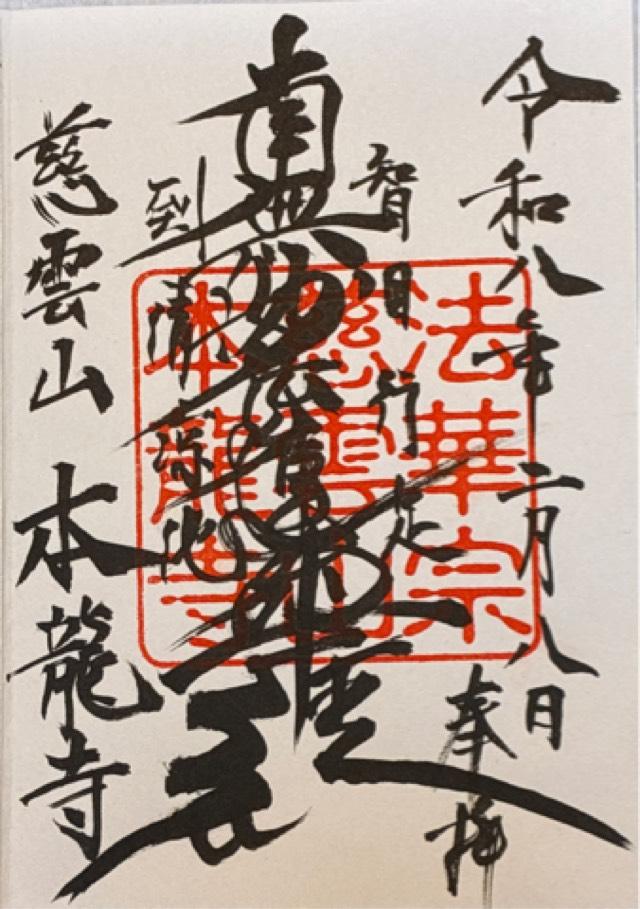 令和八年二月八日
奉拝
智目行足
南無妙法蓮華経
到清涼池
慈雲山 本龍寺
法華宗
慈雲山
本龍寺